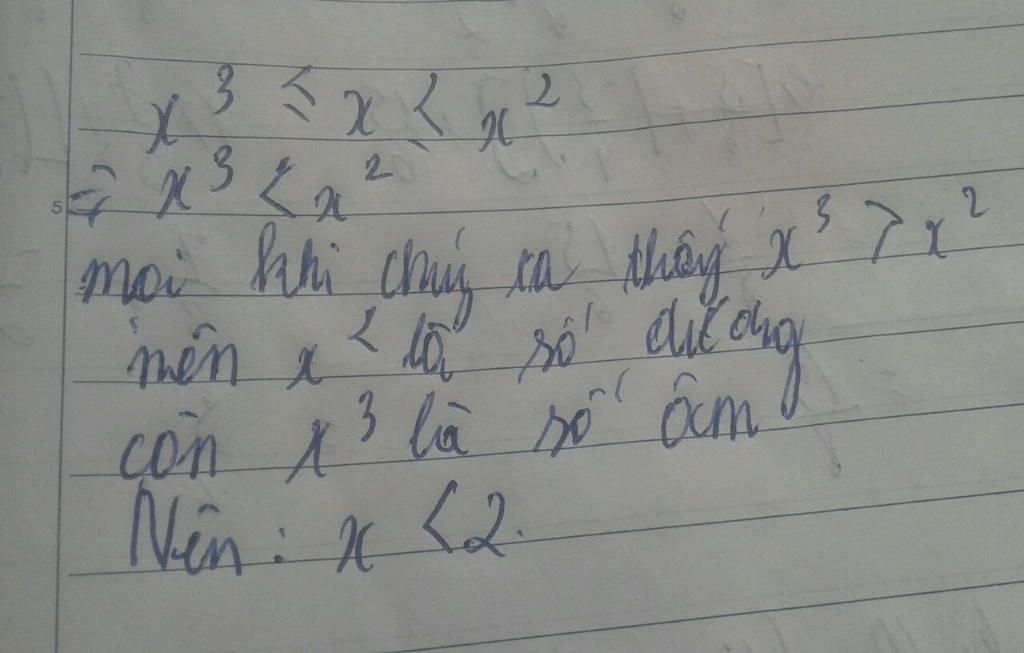 x³ ≤ x < x²
⇒ x³ < x²
mọi khi chúng ta thấy x³ > x²
nên x² là số dương
còn x³ là số âm
Nên: x < 2.
5